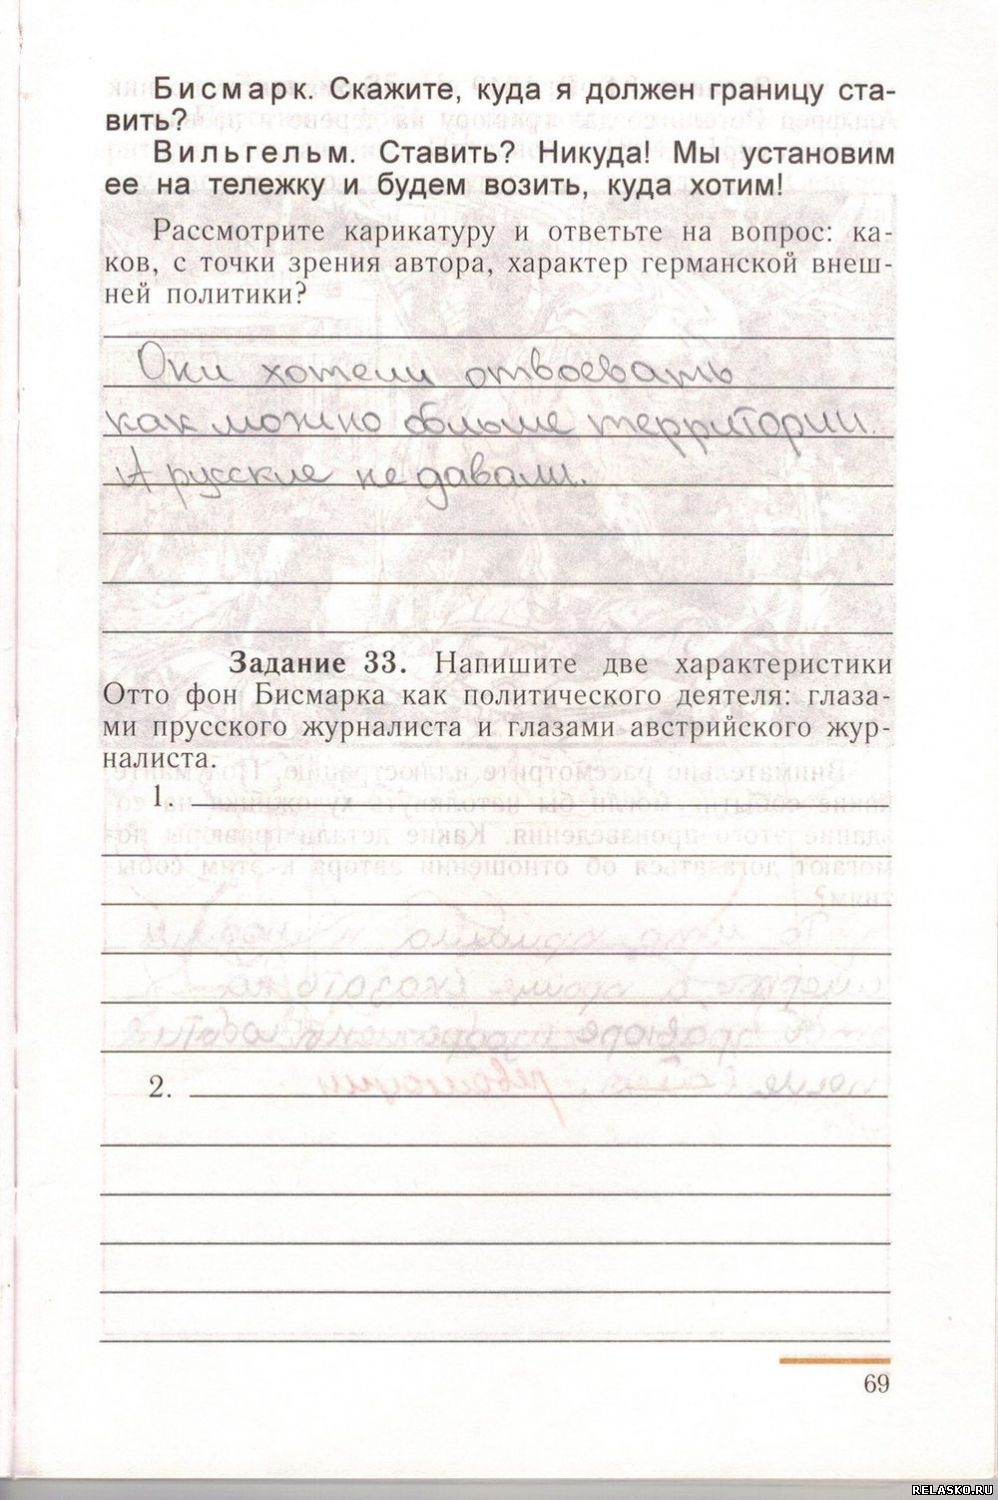 Бисмарк. Скажите, куда я должен границу ста-
вить?
Вильгельм. Ставить? Никуда! Мы установим
ее на тележку и будем возить, куда хотим!
Рассмотрите карикатуру и ответьте на вопрос: ка-
ков, с точки зрения автора, характер германской внеш-
ней политики?
Они хотели отвоевать
как можно больше территории.
А русские не давали.
Задание 33. Напишите две характеристики
Отто фон Бисмарка как политического деятеля: глаза-
ми прусского журналиста и глазами австрийского жур-
налиста.
1.
2.
69
RELASKO.RU